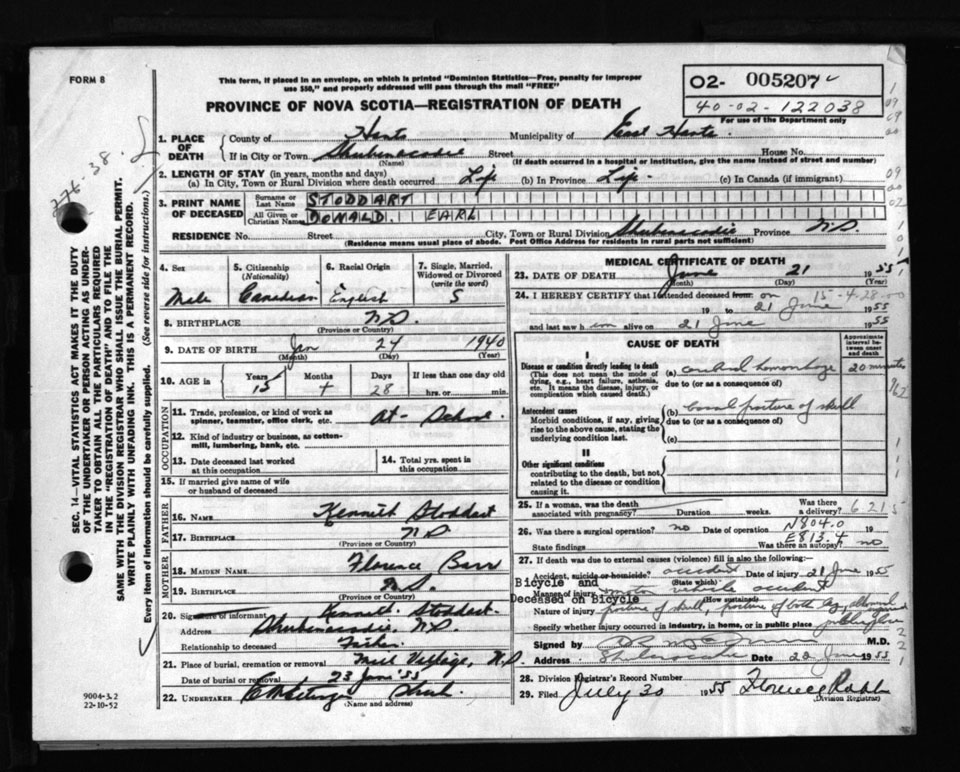 FORM 8
This form, if placed in an envelope, on which is printed "Dominion Statistics—Free, penalty for improper
use $50," and properly addressed will pass through the mail "FREE"
PROVINCE OF NOVA SCOTIA—REGISTRATION OF DEATH
O2- 005207
40-02-122038
For use of the Department only
1. PLACE OF DEATH
County of Hants Municipality of East Hants.
If in City or Town Shubenacadie Street House No.
(Name) (If death occurred in a hospital or institution, give the name instead of street and number)
2. LENGTH OF STAY (in years, months and days)
(a) In City, Town or Rural Division where death occurred Life (b) In Province Life. (c) In Canada (if immigrant)
3. PRINT NAME OF DECEASED
Surname or Last Name STODDART
All Given or Christian Names DONALD. EARL
RESIDENCE No. Street City, Town or Rural Division Shubenacadie Province N.S.
(Residence means usual place of abode. Post Office Address for residents in rural parts not sufficient)
4. Sex Male
5. Citizenship (Nationality) Canadian
6. Racial Origin English
7. Single, Married, Widowed or Divorced (write the word) S
8. BIRTHPLACE N.S.
(Province or Country)
9. DATE OF BIRTH Jan 24 1940
(Month) (Day) (Year)
10. AGE in Years 15 Months 4 Days 28 If less than one day old hrs. or min.
OCCUPATION
11. Trade, profession, or kind of work as spinner, teamster, office clerk, etc. At School
12. Kind of industry or business, as cotton-mill, lumbering, bank, etc.
13. Date deceased last worked at this occupation
14. Total yrs. spent in this occupation
15. If married give name of wife or husband of deceased
FATHER
16. NAME Kenneth Stoddart
17. BIRTHPLACE N.S.
(Province or Country)
MOTHER
18. MAIDEN NAME Florence Barr
19. BIRTHPLACE N.S.
(Province or Country)
20. Signature of informant Kenneth. Stoddart.
Address Shubenacadie, N.S.
Relationship to deceased Father
21. Place of burial, cremation or removal Mill Village, N.S.
Date of burial or removal 23 June '55
22. UNDERTAKER
(Name and address)
MEDICAL CERTIFICATE OF DEATH
23. DATE OF DEATH June 21 1955
(Month) (Day) (Year)
15-4-28-00
24. I HEREBY CERTIFY that I attended deceased from: on
19 to 21 June 1955
and last saw him alive on 21 June 1955
CAUSE OF DEATH
Approximate interval between onset and death
I
Disease or condition directly leading to death
(This does not mean the mode of dying, e.g., heart failure, asthenia, etc. It means the disease, injury, or complication which caused death.)
(a) cerebral hemorrhage 20 minutes
due to (or as a consequence of)
Antecedent causes
Morbid conditions, if any, giving rise to the above cause, stating the underlying condition last.
(b) basal fracture of skull
due to (or as a consequence of)
(c)
II
Other significant conditions
contributing to the death, but not related to the disease or condition causing it.
25. If a woman, was the death associated with pregnancy? Duration weeks. Was there a delivery? 621
26. Was there a surgical operation? no Date of operation 19
N804.0
E813.4
State findings Was there an autopsy? no
27. If death was due to external causes (violence) fill in also the following:
Accident, suicide or homicide? accident Date of injury 21 June 1955
(State which)
Bicycle and
Manner of injury motor vehicle accident
Deceased on Bicycle (How sustained)
Nature of injury fracture of skull, fracture of both legs,
Specify whether injury occurred in industry, in home, or in public place public place
Signed by M.D.
Address Shubenacadie Date 22 June 1955
28. Division Registrar's Record Number
29. Filed July 30 1955 Florence
(Division Registrar)
SEC. 14—VITAL STATISTICS ACT MAKES IT THE DUTY
OF THE UNDERTAKER OR PERSON ACTING AS UNDER-
TAKER TO OBTAIN ALL THE PARTICULARS REQUIRED
IN THE "REGISTRATION OF DEATH" AND TO FILE THE
SAME WITH THE DIVISION REGISTRAR WHO SHALL ISSUE THE BURIAL PERMIT.
WRITE PLAINLY WITH UNFADING INK. THIS IS A PERMANENT RECORD.
Every item of information should be carefully supplied. (See reverse side for instructions.)
9004-3.2
22-10-52